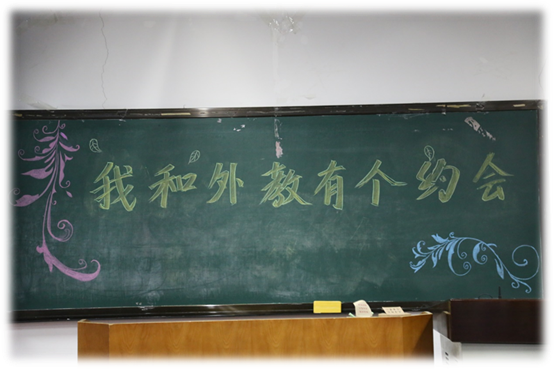 我和外教有个约会